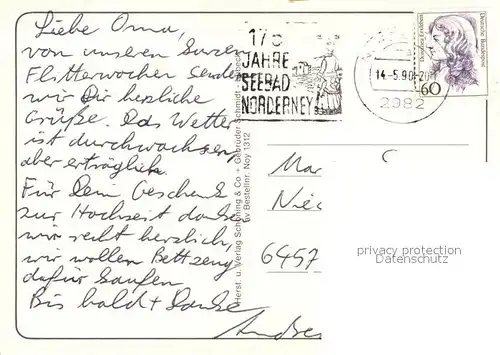 Liebe Oma,
von unseren kurzen
Flitterwochen senden
wir Dir herzliche
Grüße. Das Wetter
ist durchwachsen
aber erträglich.
Für Dein Geschenk
zur Hochzeit danken
wir recht herzlich,
wir wollen Bettzeug
dafür kaufen
Bis bald + Danke
Andre
Herst. u. Verlag Schöning & Co + Gebrüder Schmidt
Bestellnr. Noy 1312
175
JAHRE
SEEBAD
NORDERNEY
14.-5.90
2982
Dorothea Erxleben
Deutsche Bundespost
60
Mar
Nied
6457
privacy protection
Datenschutz